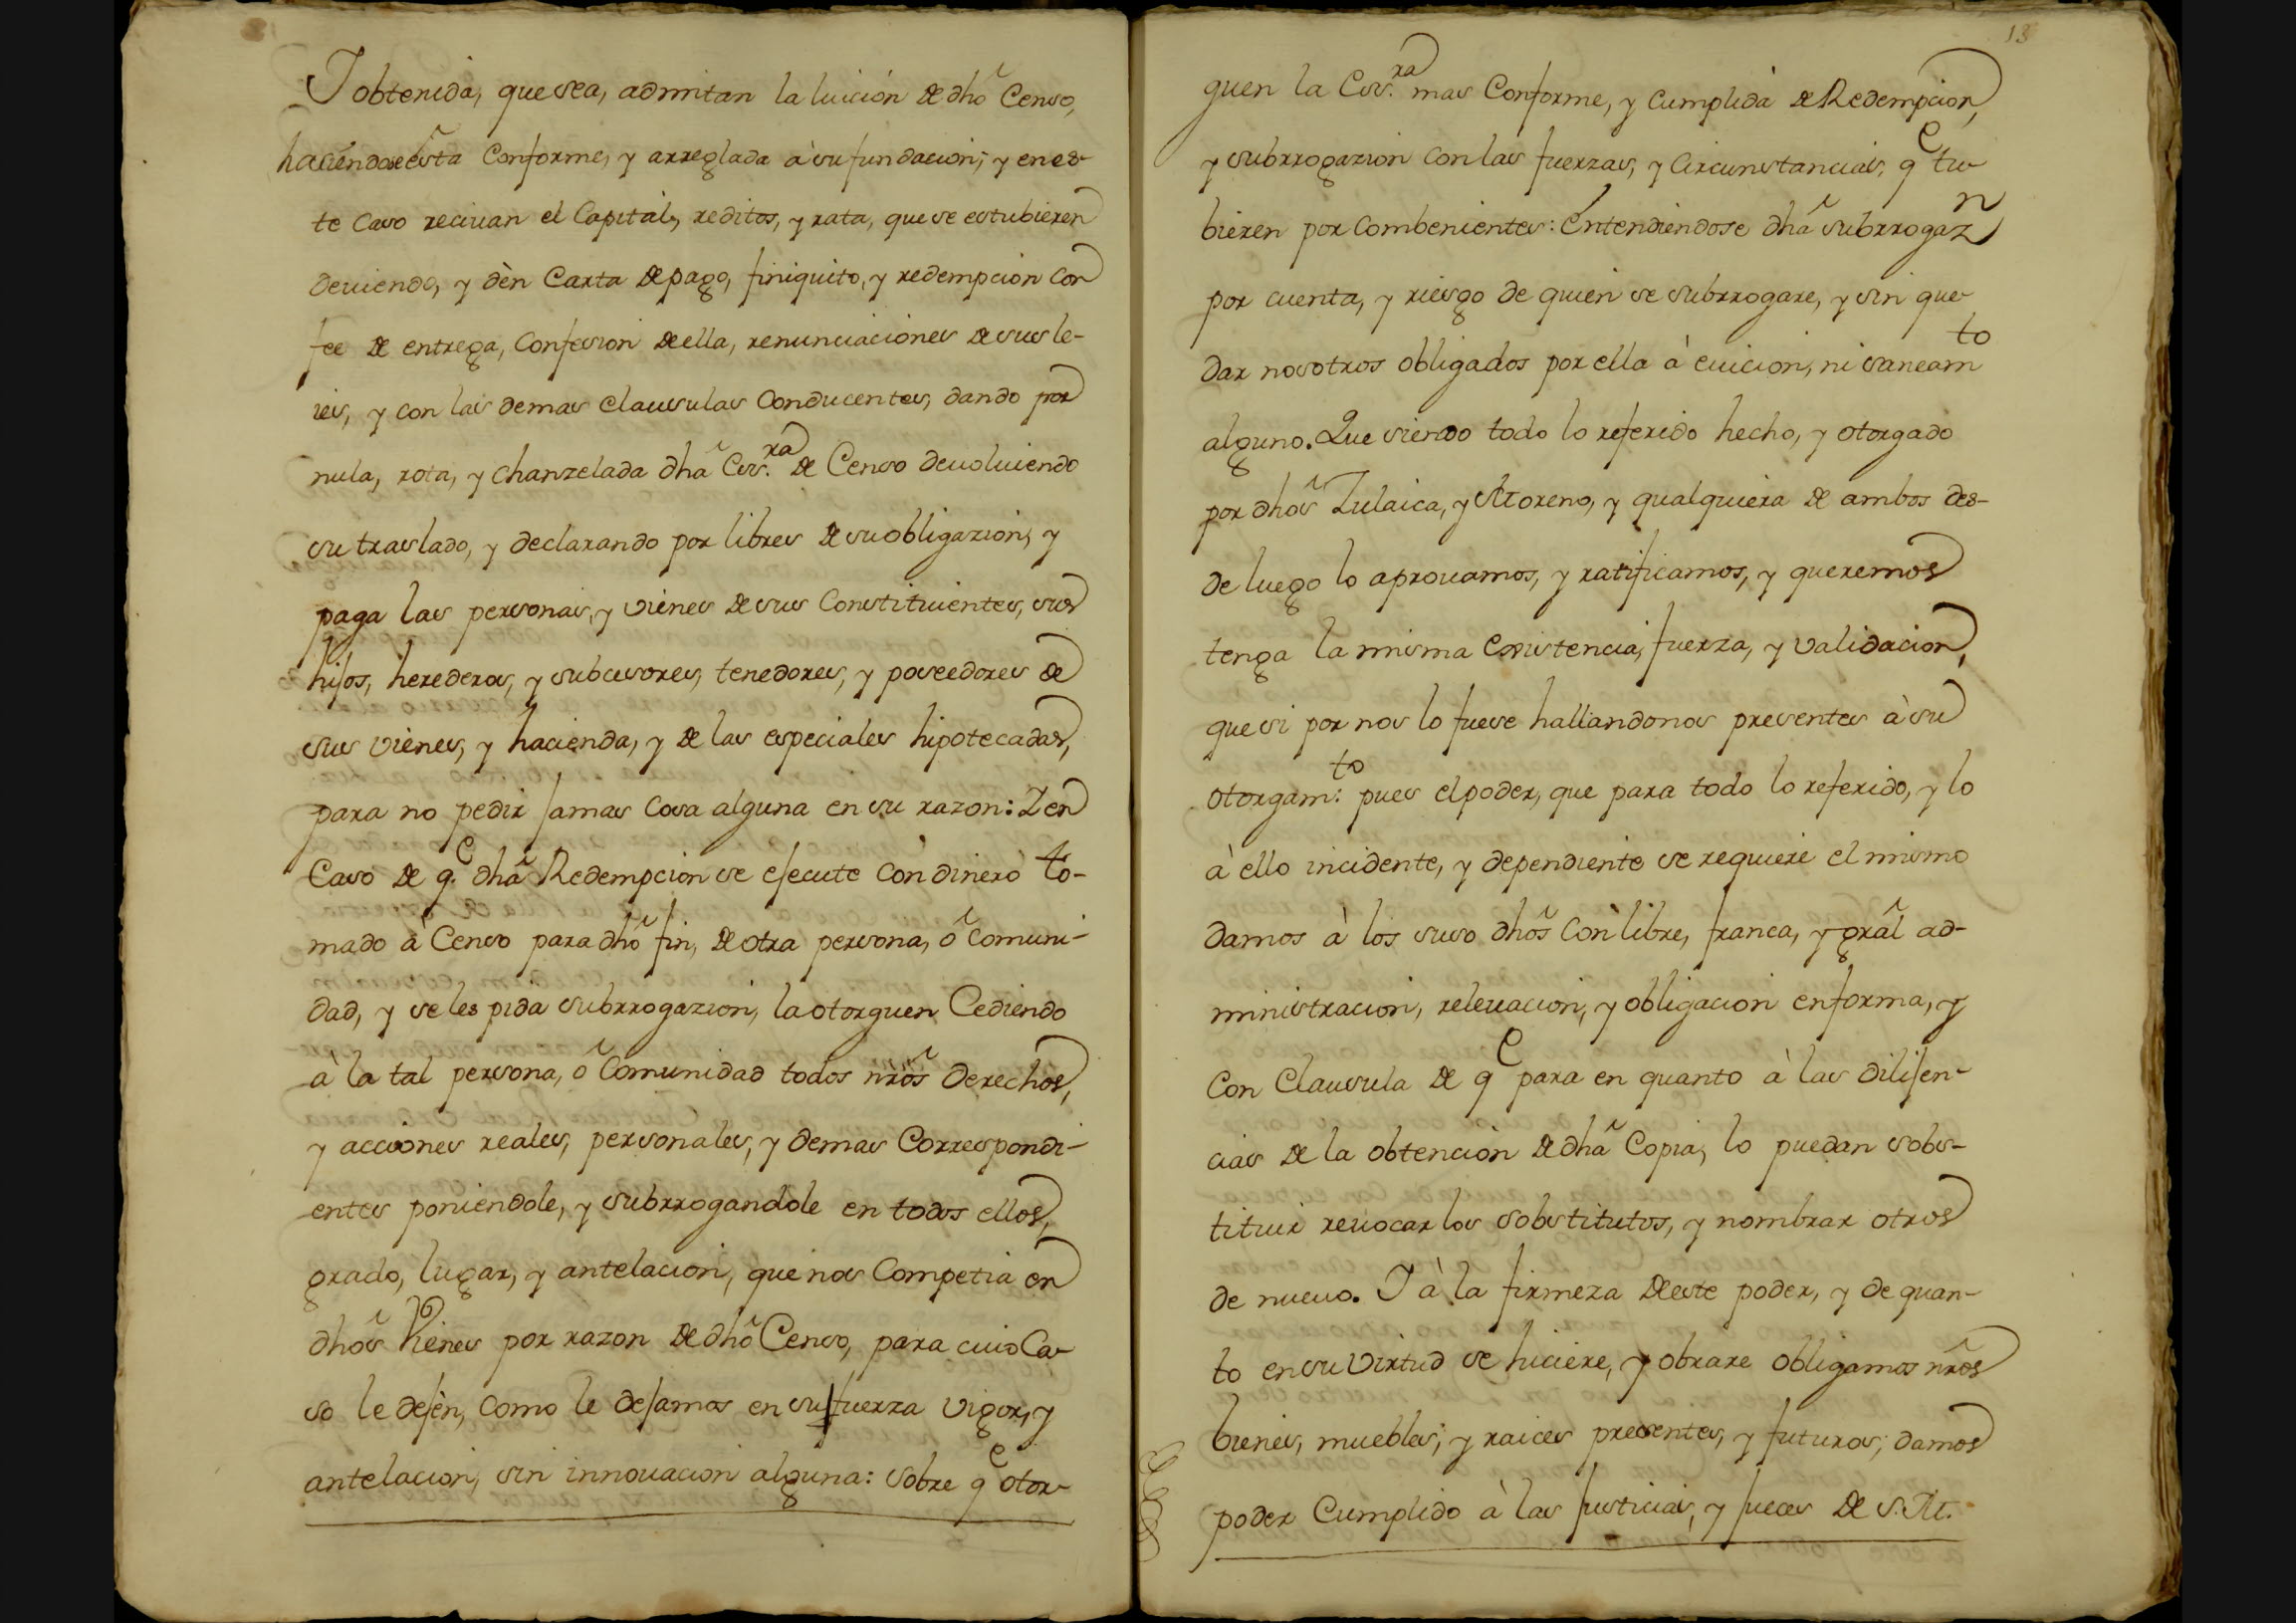 Y obtenida, que sea, admitan la luición de dhõ Censo,
haciendose esta Conforme, y arreglada à su fundacion; y en es-
te Caso reciuan el Capital, reditos, y rata, que se estubieren
deuiendo, y dèn Carta de pago, finiquito, y redempcion con
fee de entrega, Confesion de ella, renunciaciones de sus le-
ies, y con las demas Clausulas Conducentes, dando por
nula, rota, y Chanzelada dhã Ess.ra de Censo deuoluiendo
su traslado, y declarando por libres de su obligazion, y
paga las personas, y vienes de sus Constituientes, sus
hijos, herederos, y subcesores, tenedores, y poseedores de
sus vienes, y hacienda, y de las especiales hipotecadas,
para no pedir jamas Cosa alguna en su razon: Y en
Caso de q.e dhã Redempcion se ejecute Con dinero to-
mado à Censo para dhõ fin, de otra persona, õ Comuni-
dad, y se les pida subrrogazion, la otorguen Cediendo
à la tal persona, õ Comunidad todos nrõs derechos,
y acciones reales, personales, y demas Correspondi-
entes poniendole, y subrrogandole en todos ellos,
grado, lugar, y antelacion, que nos Competia en
dhõs Vienes por razon de dhõ Censo, para cuio Ca-
so le dejèn, Como le dejamos en su fuerza vigor, y
antelacion, sin innouacion alguna: sobre q.e otor-
18
guen la Ess.ra mas Conforme, y Cumplida de Redempcion,
y subrrogazion con las fuerzas, y Circunstancias, q.e tu-
bieren por Combenientes: Entendiendose dhã subrrogaz.n
por cuenta, y riesgo de quien se subrrogare, y sin que-
dar nosotros obligados por ella à euicion, ni saneam.to
alguno. Que siendo todo lo referido hecho, y otorgado
por dhõs Zulaica, y Moreno, y qualquiera de ambos des-
de luego lo aprouamos, y ratificamos, y queremos
tenga la misma existencia, fuerza, y validacion,
que si por nos lo fuese hallandonos presentes à su
otorgam.to pues el poder, que para todo lo referido, y lo
à ello incidente, y dependiente se requiere el mismo
damos à los suso dhõs Con libre, franca, y grãl ad-
ministracion, releuacion, y obligacion en forma, y
Con Clausula de q.e para en quanto à las dilijen-
cias de la obtencion de dhã Copia, lo puedan sobs-
tituir reuocar los sobstitutos, y nombrar otros
de nueuo. Y à la firmeza de este poder, y de quan-
to en su virtud se hiciere, y obrare obligamos nrõs
bienes, muebles, y raices presentes, y futuros; damos
poder Cumplido à las justicias, y jueces de S. M.